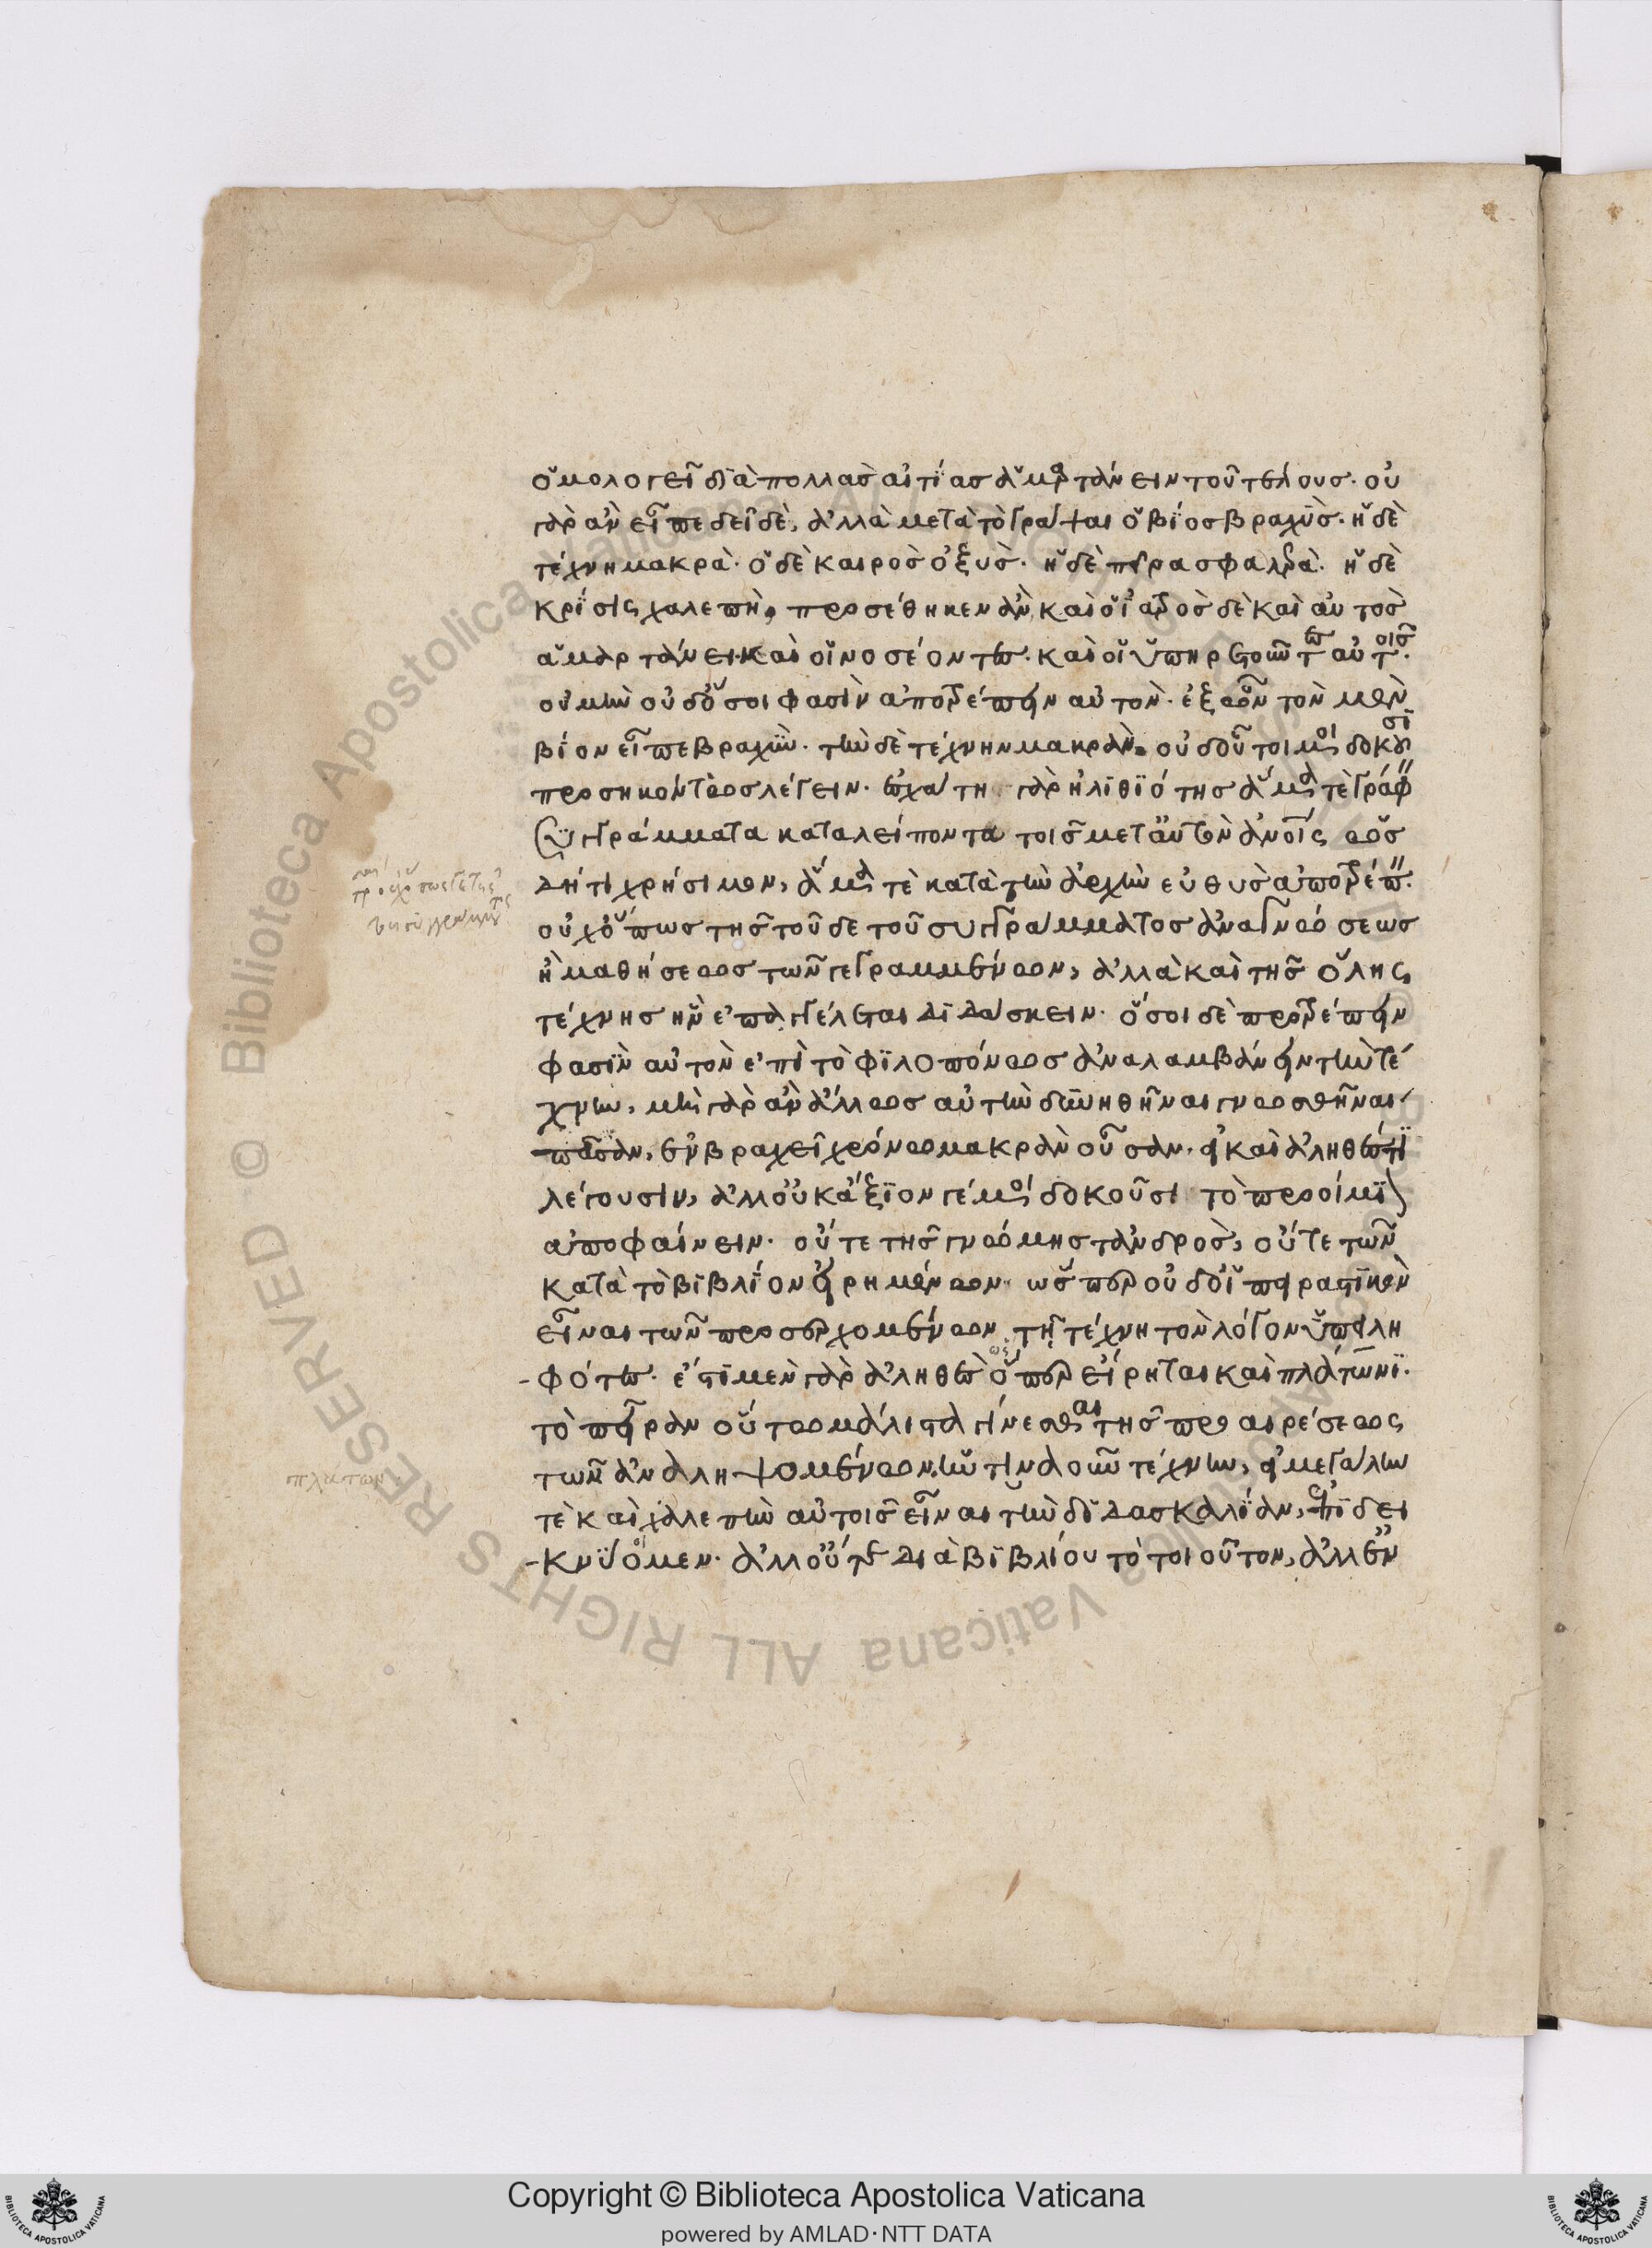 ὁμολογεῖ διὰ πολλὰς αἰτίας ἁμαρτάνειν τοῦ τέλους. οὐ
γὰρ ἂν εἶπε δεῖ δὲ, ἀλλὰ μετὰ τὸ γράψαι ὁ βίος βραχὺς. ἡ δὲ
τέχνη μακρὰ. ὁ δὲ καιρὸς ὀξὺς. ἡ δὲ πεῖρα σφαλερὰ. ἡ δὲ
κρίσις χαλεπὴ, προσέθηκεν ἂν καὶ ὁ ἰατρὸς δὲ καὶ αὐτὸς
ἁμαρτάνει. καὶ οἱ νοσέοντες. καὶ οἱ ὑπηρετοῦντες αὐτοῖς.
οὐ μὴν οὐδ' ὅσοι φασὶν ἀποτρέπειν αὐτὸν. ἐξ ὧν τὸν μὲν
βίον εἶπε βραχὺν. τὴν δὲ τέχνην μακρὰν. οὐδ' οὗτοί μοι δοκοῦσι
προσηκόντως λέγειν. ἐσχάτη γὰρ ἠλιθιότης ἅμα τε γράφειν
συγγράμματα καταλείποντα τοῖς μετ' αὐτὸν ἀνθρώποις ὡς
δή τι χρήσιμον, ἅμα τε κατὰ τὴν ἀρχὴν εὐθὺς ἀποτρέπειν.
οὐχ ὅπως τῆς τοῦδε τοῦ συγγράμματος ἀναγνώσεως
ἢ μαθήσεως τῶν γεγραμμένων, ἀλλὰ καὶ τῆς ὅλης
τέχνης ἣν ἐπαγγέλεται διδάσκειν. ὅσοι δὲ προτρέπειν
φασὶν αὐτὸν ἐπὶ τὸ φιλοπόνως ἀναλαμβάνειν τὴν τέ
χνην, μὴ γὰρ ἂν ἄλλως αὐτὴν δυνηθῆναι γνωσθῆναι
πᾶσαν, ἐν βραχεῖ χρόνω μακρὰν οὖσαν. εἰ καὶ ἀληθές τι
λέγουσιν, ἀλλ' οὐκ ἄξιον γέ μοι δοκοῦσι τὸ προοίμιον
ἀποφαίνειν. οὔτε τῆς γνώμης τἀνδρὸς, οὔτε τῶν
κατὰ τὸ βιβλίον εἰρημένων. ὥσπερ οὐδ' οἱ πειραστικὸν
εἶναι τῶν προσερχομένων τῇ τέχνη τὸν λόγον ὑπειλη
-φότες. ἔστι μὲν γὰρ ἀληθὲς ὅπερ εἴρηται καὶ πλάτωνι.
τὸ πεῖραν οὕτω μάλιστα γίνεσθαι τῆς προαιρέσεως
τῶν ἀναληψομένων ἡντιναοῦν τέχνην, εἰ μεγάλην
τὲ καὶ χαλεπὴν αὐτοῖς εἶναι τὴν διδασκαλίαν, ἐπιδει
-κνύομεν. ἀλλ' οὔτε διὰ βιβλίου τὸ τοιοῦτον, ἀλλ' ἐν
πλάτων.
Copyright © Biblioteca Apostolica Vaticana
powered by AMLAD·NTT DATA
© Biblioteca Apostolica Vaticana ALL RIGHTS RESERVED